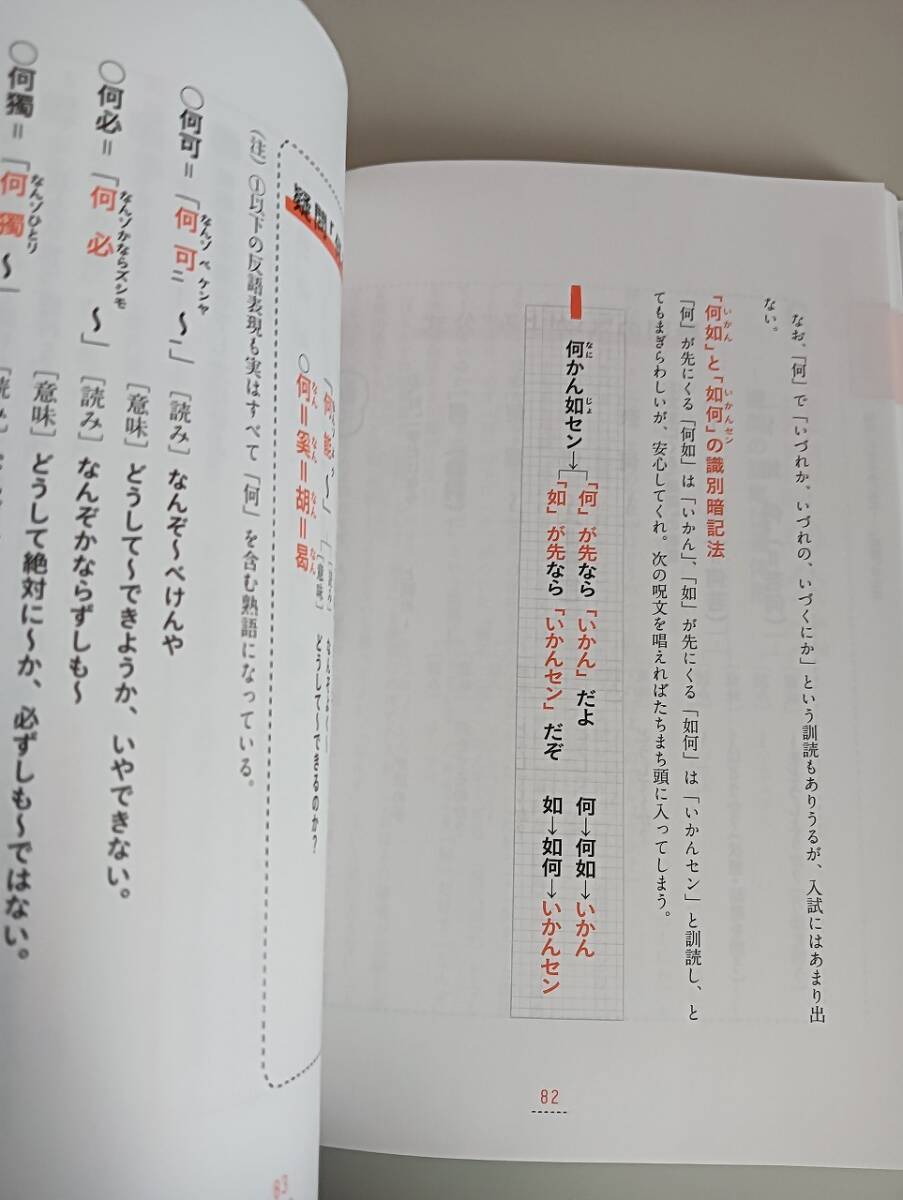 なお、「何」で「いづれか、いづれの、いづくにか」という訓読もありうるが、入試にはあまり出
ない。
「何如」と「如何」の識別暗記法
いかん
いかんセン
「何」が先にくる「何如」は「いかん」、「如」が先にくる「如何」は「いかんセン」と訓読し、と
てもまぎらわしいが、安心してくれ。次の呪文を唱えればたちまち頭に入ってしまう。
何かん如セン→
なに
じょ
「何」が先なら「いかん」だよ
「如」が先なら「いかんセン」だぞ
何→何如→いかん
如→如何→いかんセン
82
疑問
どうして〜できるのか?
○何=奚=胡=曷
なん
なん
なん
なん
(注)①以下の反語表現も実はすべて「何」を含む熟語になっている。
○何可=「何可ニ〜一」
なんゾ ベケンヤ
[読み]なんぞ〜べけんや
[意味]どうして〜できようか、いやできない。
○何必=「何必 〜」
なんゾかならズシモ
[読み]なんぞかならずしも〜
[意味]どうして絶対に〜か、必ずしも〜ではない。
○何獨=「何獨 〜」
なんゾひとり
83